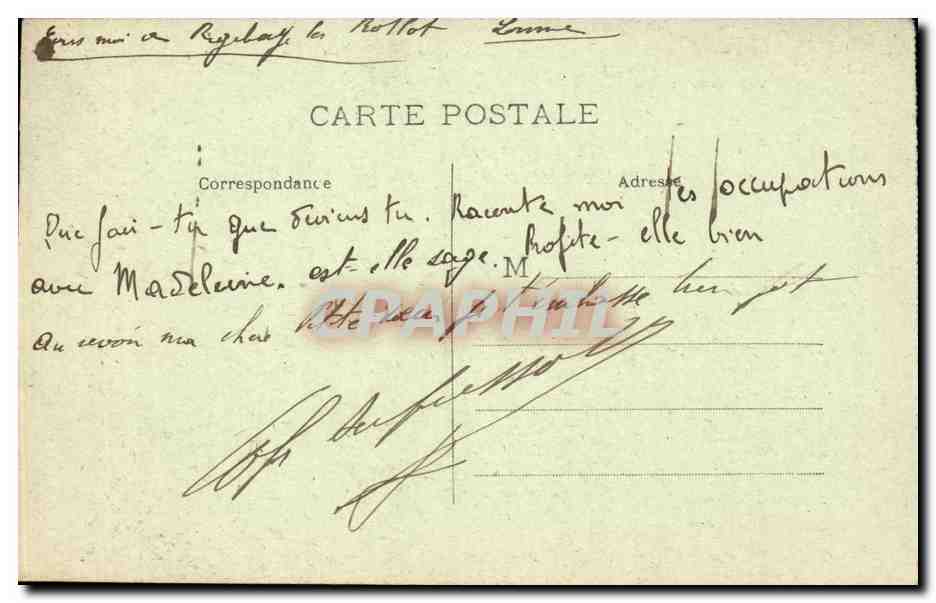 Ecris moi a Regebay les Rollot Somme
CARTE POSTALE
Correspondance
Adresse
Que fais-tu que deviens tu. Raconte moi tes occupations
avec Madeleine. est-elle sage. Profite-elle bien
M
au revoir ma chere Petite soeur je t'embrasse bien fort
CPAPHIL